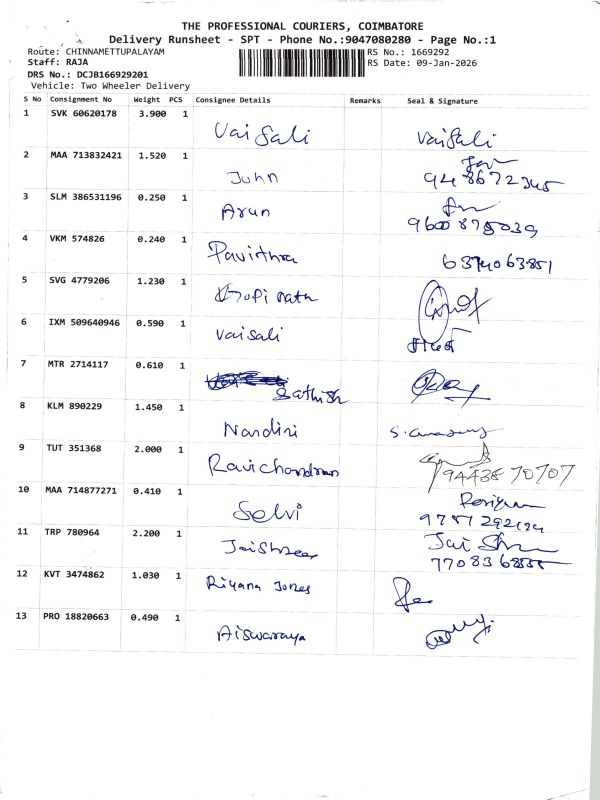 THE PROFESSIONAL COURIERS, COIMBATORE
Delivery Runsheet - SPT - Phone No.:9047080280 - Page No.:1
Route: CHINNAMETTUPALAYAM RS No.: 1669292
Staff: RAJA RS Date: 09-Jan-2026
DRS No.: DCJB166929201
Vehicle: Two Wheeler Delivery
S No Consignment No Weight PCS Consignee Details Remarks Seal & Signature
1 SVK 60620178 3.900 1 Vaisali Vaisali
2 MAA 713832421 1.520 1 John
3 SLM 386531196 0.250 1 Arun
4 VKM 574826 0.240 1 Pavithra 6374063851
5 SVG 4779206 1.230 1 Gopi nath
6 IXM 509640946 0.590 1 Vaisali
7 MTR 2714117 0.610 1 Sathish
8 KLM 890229 1.450 1 Nandini
9 TUT 351368 2.000 1 Ravichandran 94438 70707
10 MAA 714877271 0.410 1 Selvi
11 TRP 780964 2.200 1 Jaishree Jai
12 KVT 3474862 1.030 1 Riyana Jones
13 PRO 18820663 0.490 1 Aiswaraya